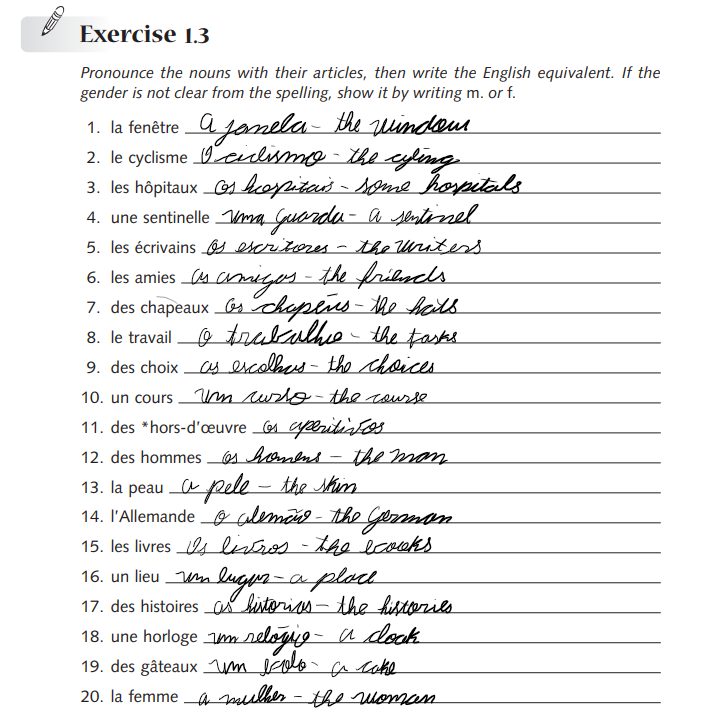 Exercise 1.3
Pronounce the nouns with their articles, then write the English equivalent. If the
gender is not clear from the spelling, show it by writing m. or f.
1. la fenêtre A janela - the window
2. le cyclisme O ciclismo - the cyling
3. les hôpitaux os hospitais - some hospitals
4. une sentinelle uma guarda - a sentinel
5. les écrivains Os escritores - the writers
6. les amies as amigas - the friends
7. des chapeaux os chapéus - the hats
8. le travail o trabalho - the tasks
9. des choix as escolhas - the choices
10. un cours um curso - the course
11. des *hors-d'œuvre os aperitivos
12. des hommes os homens - the man
13. la peau a pele - the skin
14. l'Allemande o alemão - the German
15. les livres Os livros - the books
16. un lieu um lugar - a place
17. des histoires as historias - the histories
18. une horloge um relógio - a cloak
19. des gâteaux um bolo - a cake
20. la femme a mulher - the woman